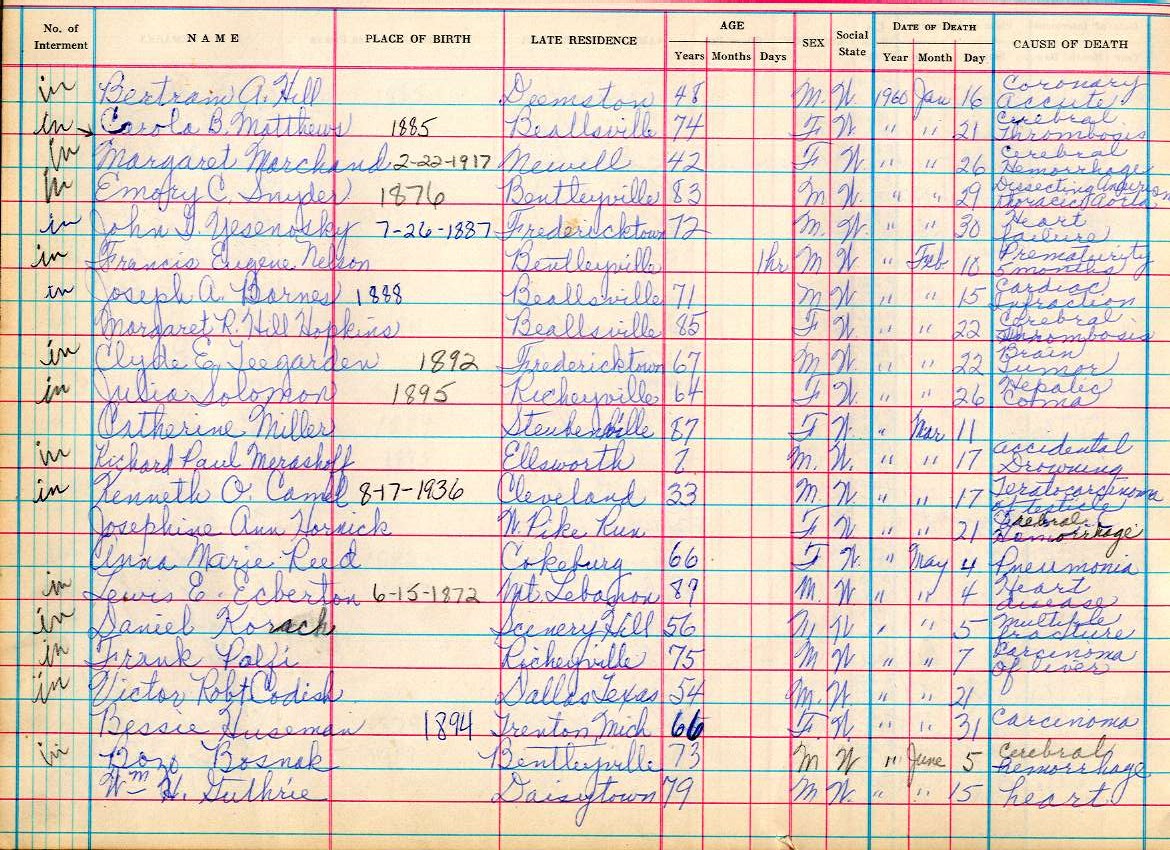 No. of Interment NAME PLACE OF BIRTH LATE RESIDENCE AGE Years Months Days SEX Social State DATE OF DEATH Year Month Day CAUSE OF DEATH
in Bertram A. Hill Deemston 48 M. W. 1960 Jan 16 Coronary Accute
in Carola B. Matthews 1885 Beallsville 74 F W " " 21 Cerebral Thrombosis
in Margaret Marchand 2-22-1917 Newell 42 F W " " 26 Cerebral Hemorrhage
in Emory C. Snyder 1876 Bentleyville 83 M W. " " 29 Dissecting thoracic Aorta
in John I. Yesenosky 7-26-1887 Fredericktown 72 M. W. " " 30 Heart failure
in Francis Eugene Nelson Bentleyville 1hr M W " Feb 18 Prematurity 5 months
in Joseph A. Barnes 1888 Beallsville 71 M W " " 15 Cardiac
Margaret R. Hill Hopkins Beallsville 85 F W. " " 22 Cerebral Thrombosis
in Clyde E. Teegarden 1892 Fredericktown 67 M W. " " 22 Brain Tumor
in Julia Solomon 1895 Richeyville 64 F W. " " 26 Hepatic Coma
Catherine Miller Steubenville 87 F W. " Mar 11
in Richard Paul Ellsworth M. W. " " 17 accidental Drowning
in Kenneth O. Camel 8-17-1936 Cleveland 23 M. W " " 17 Teratocarcinoma of testicle
Josephine Ann Hornick W. Pike Run F W " " 21 Cerebral Hemorrhage
Anna Marie Reed Cokeburg 66 F W. " May 4 Pneumonia
in Lewis E. Ecberton 6-15-1872 Mt. Lebanon 89 M. W. " " 4 Heart disease
in Daniel Korach Scenery Hill 56 M W " " 5 Multiple fracture
in Frank Palzi Richeyville 75 M W " " 7 Carcinoma of liver
in Victor Robt Codish Dallas Texas 54 M. W " " 21
Bessie Huseman 1894 Trenton, Mich 66 F W. " " 31 Carcinoma
in Bozo Bosnak Bentleyville 73 M W " June 5 Cerebral hemorrhage
Wm H. Guthrie Daisytown 79 M W. " " 15 heart